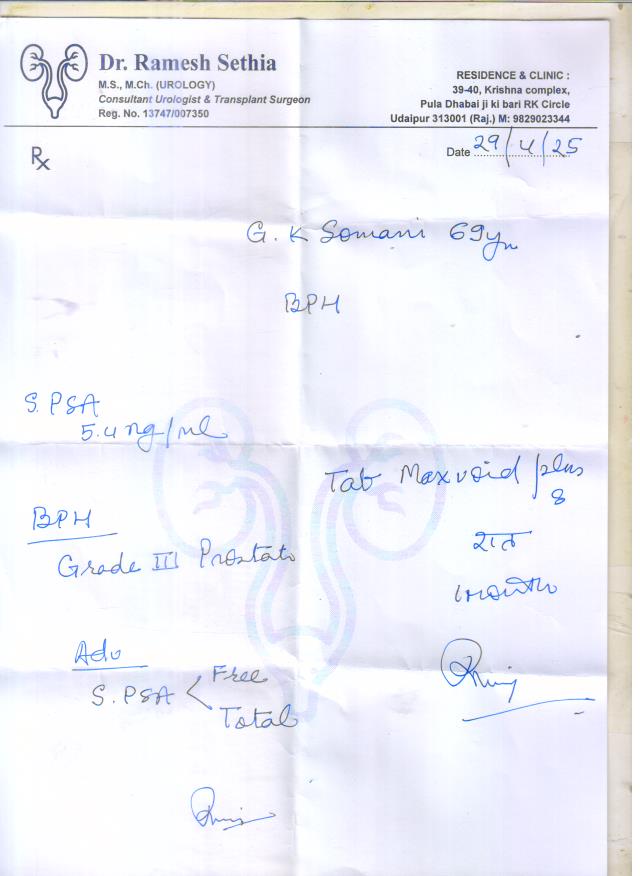 Dr. Ramesh Sethia
M.S., M.Ch. (UROLOGY)
Consultant Urologist & Transplant Surgeon
Reg. No. 13747/007350
RESIDENCE & CLINIC :
39-40, Krishna complex,
Pula Dhabai ji ki bari RK Circle
Udaipur 313001 (Raj.) M: 9829023344
Rx
Date 29/4/25
G. K Somani 69yr
BPH
S. PSA
5.4 ng/ml
Tab Maxvoid plus
8
रात
1 month
BPH
Grade III Prostate
Adv
S. PSA < Free
Total